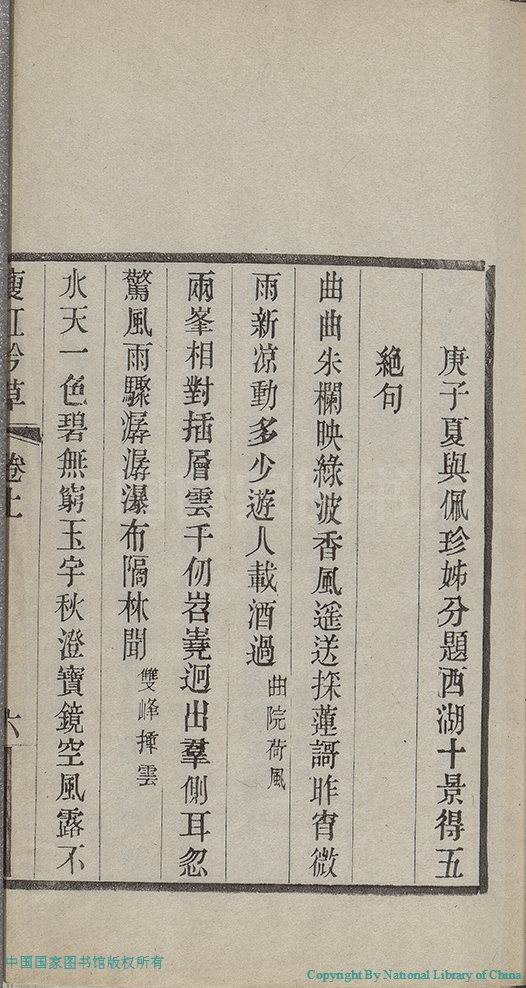 庚子夏與佩珍姊分題西湖十景得五
絕句
曲曲朱欄映綠波香風遥送採蓮謌昨宵微
雨新凉動多少遊人載酒過曲院荷風
兩峯相對插層雲千仞岧嶤迥出羣側耳忽
驚風雨驟潺潺瀑布隔林聞雙峰揷雲
水天一色碧無窮玉宇秋澄寶鏡空風露不
瘦紅吟草 卷上 六
中国国家图书馆版权所有
Copyright By National Library of China